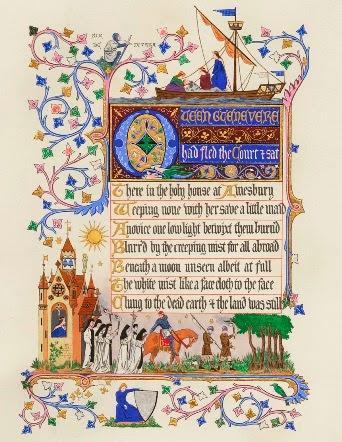 SIR
QUEEN GUENEVERE
had fled the Court & sat
There in the holy house at Amesbury
Weeping none with her save a little maid
A novice one low light betwixt them burnd
Blurrd by the creeping mist for all abroad
Beneath a moon unseen albeit at full
The white mist like a face cloth to the face
Clung to the dead earth & the land was still